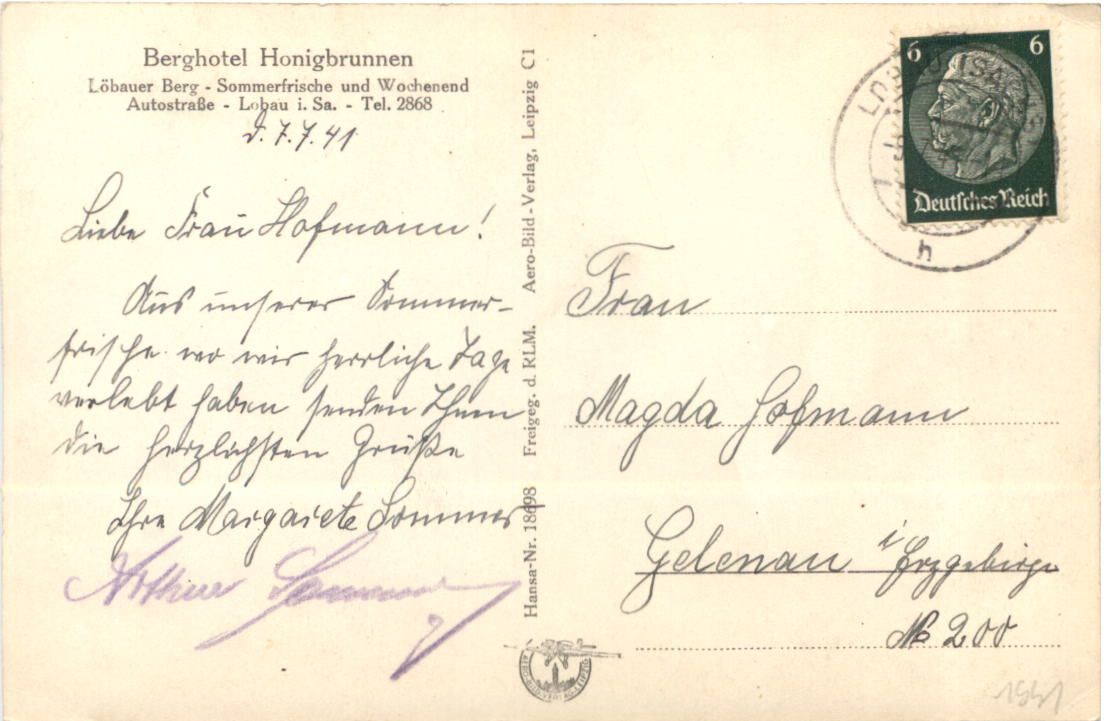 Berghotel Honigbrunnen
Löbauer Berg - Sommerfrische und Wochenend
Autostraße - Lobau i. Sa. - Tel. 2868
d. 7.7.41
Liebe Frau Hofmann!
Aus unserer Sommer-
frische wo wir herrliche Tage
verlebt haben senden Ihnen
die herzlichsten Grüße
Ihre Margarete Sommer
Arthur Sommer
Hansa-Nr. 18698 Freigeg. d. RLM. Aero-Bild-Verlag, Leipzig C1
6 6
Deutsches Reich
h
Frau
Magda Hofmann
Gelenau i/Erzgebirge
№ 200
AERO-BILD-VERLAG-LEIPZIG
1941